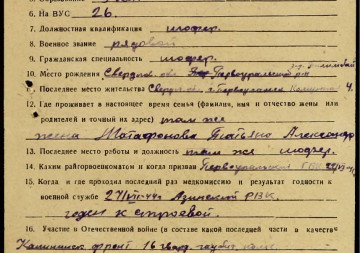 6. На ВУС 26.
7. Должностная квалификация шофер.
8. Военное звание рядовой
9. Гражданская специальность шофер.
10. Место рождения Свердлов. обл. Первоуральский рн
11. Последнее место жительства Свердлов. обл. г. Первоуральск 4.
12. Где проживает в настоящее время семья (фамилия, имя и отчество жены или
родителей и точный их адрес) там же
жена Матафонова Татьяна Александр
13. Последнее место работы и должность там же шофер.
14. Каким райгорвоенкоматом и когда призван Первоуральский ГВК
15. Когда и где проходил последний раз медкомиссию и результат годности к
военной службе 27/VII-44г Азинский РВК
годен к строевой.
16. Участие в Отечественной войне (в составе какой последней части и в качестве
Калининск фронт 16 гвард.